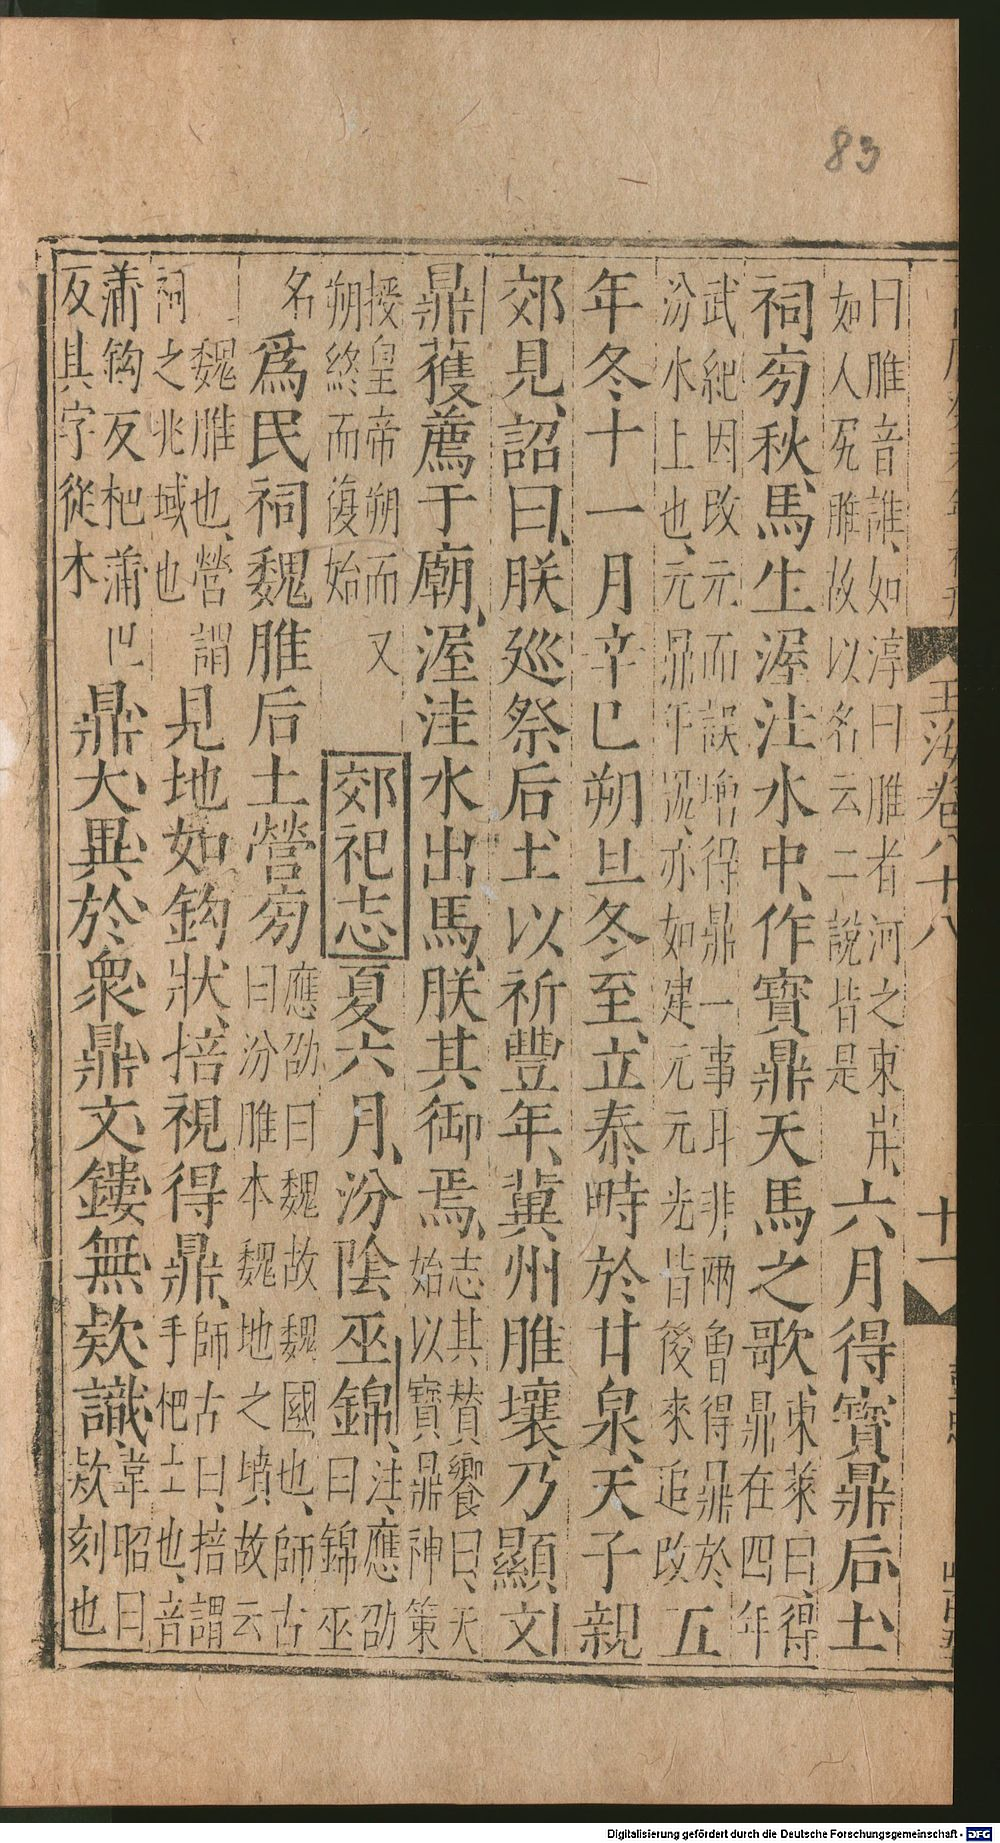 83
曰脽音誰如淳曰脽者河之東岸
如人尻脽故以名云二說皆是
六月得寶鼎后土
祠旁秋馬生渥洼水中作寶鼎天馬之歌
東萊曰得
鼎在四年
武紀因改元而誤增得鼎一事耳非兩魯得鼎於
汾水上也元鼎年號亦如建元元光皆後來追改
五
年冬十一月辛巳朔旦冬至立泰畤於甘泉天子親
郊見詔曰朕巡祭后土以祈豐年冀州脽壤乃顯文
鼎獲薦于廟渥洼水出馬朕其御焉
志其贊饗曰天
始以寶鼎神策
授皇帝朔而又
朔終而復始
郊祀志
夏六月汾陰巫錦
注應劭
曰錦巫
名
爲民祠魏脽后土營旁
應劭曰魏故魏國也師古
曰汾脽本魏地之墳故云
魏脽也營謂
祠之兆域也
見地如鈎狀掊視得鼎
師古曰掊謂
手杷土也音
蒲鈎反杷蒲巴
反其字從木
鼎大異於衆鼎文鏤無款識
韋昭曰
款刻也
玉海卷八十八
十一
Digitalisierung gefördert durch die Deutsche Forschungsgemeinschaft - DFG